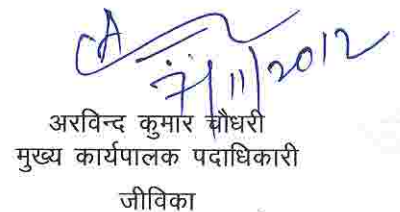 7/11/2012
अरविन्द कुमार चौधरी
मुख्य कार्यपालक पदाधिकारी
जीविका